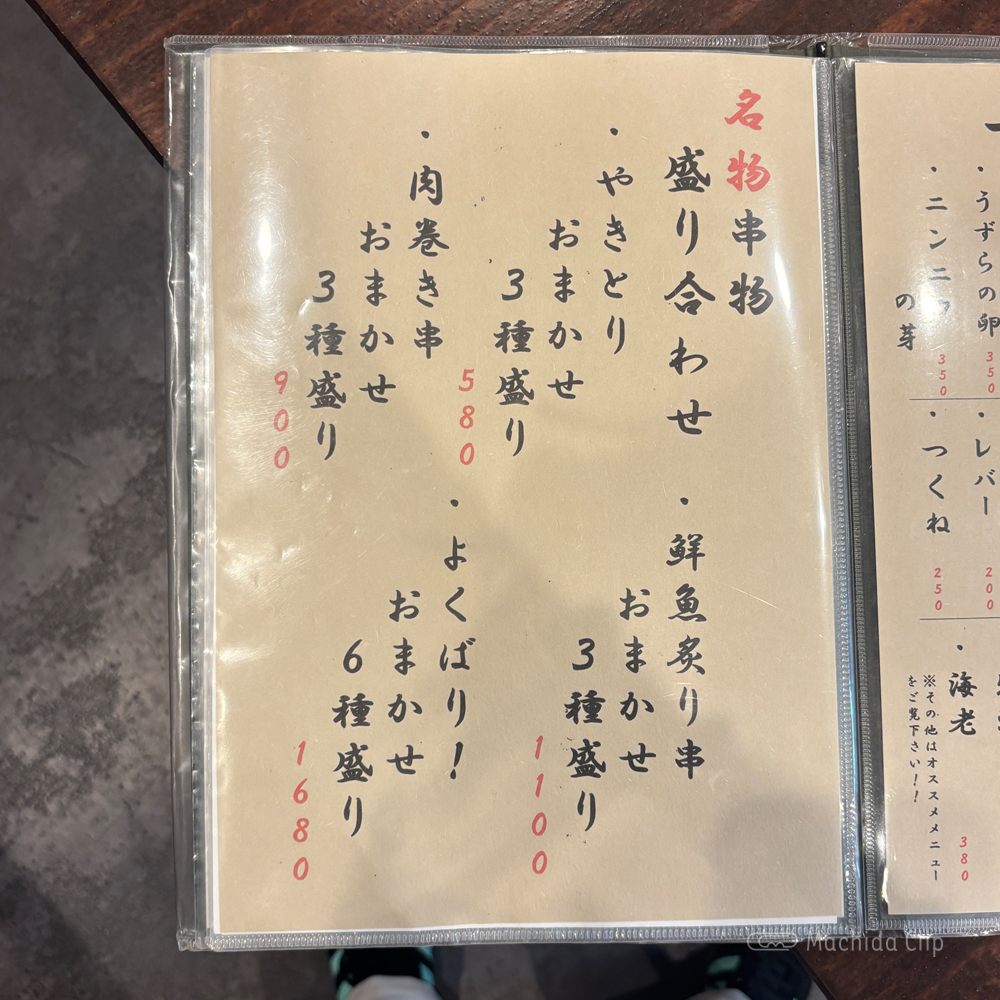 名物串物
盛り合わせ
・やきとり
おまかせ
3種盛り
580
・肉巻き串
おまかせ
3種盛り
900
・鮮魚炙り串
おまかせ
3種盛り
1100
・よくばり！
おまかせ
6種盛り
1680
・うずらの卵
350
・ニンニク
の芽
350
・レバー
200
・つくね
250
・海老
380
※その他はオススメメニュー
をご覧下さい！！
Machida Clip